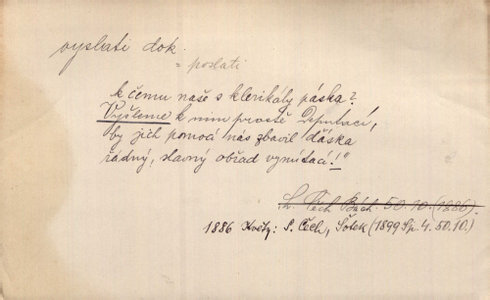 vyslati dok.
= poslati
k čemu naše s klerikály páska?
Vyšleme k nim prostě Deputaci,
by jich pomocí nás zbavil ďáska
řádný, slavný obřad vymítací!"
S. Čech Bách. 50.10. (1886).
1886 Květy: S. Čech, Šotek (1899 Sp. 4. 50.10.)